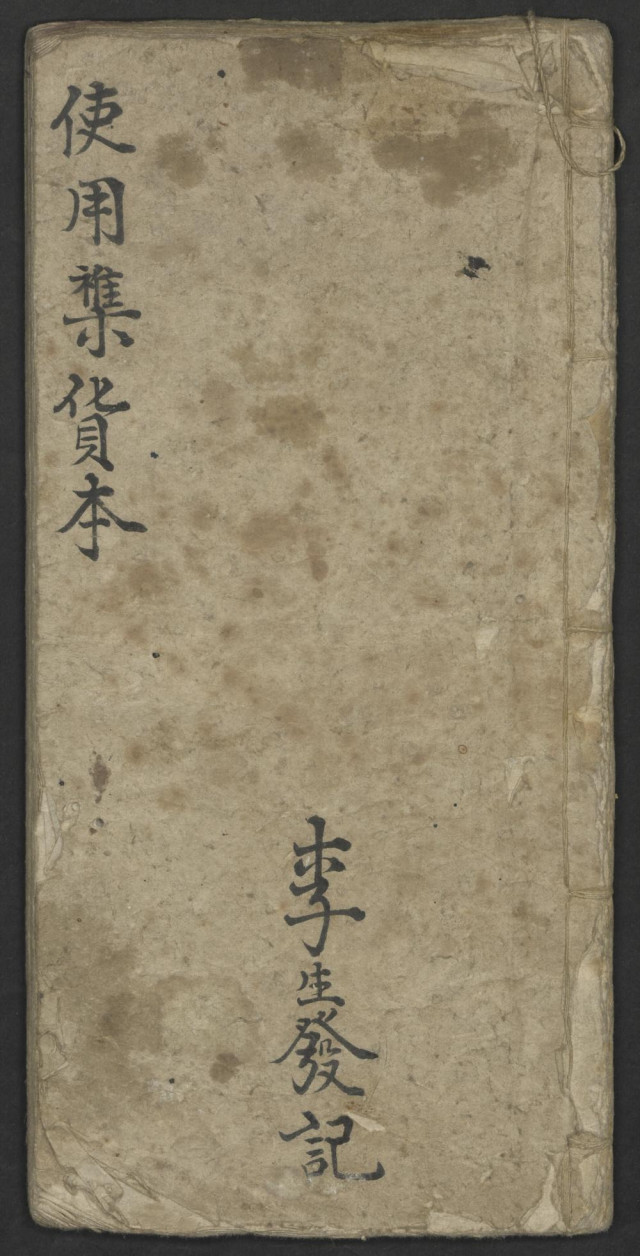 使用襍貨本
李生發記